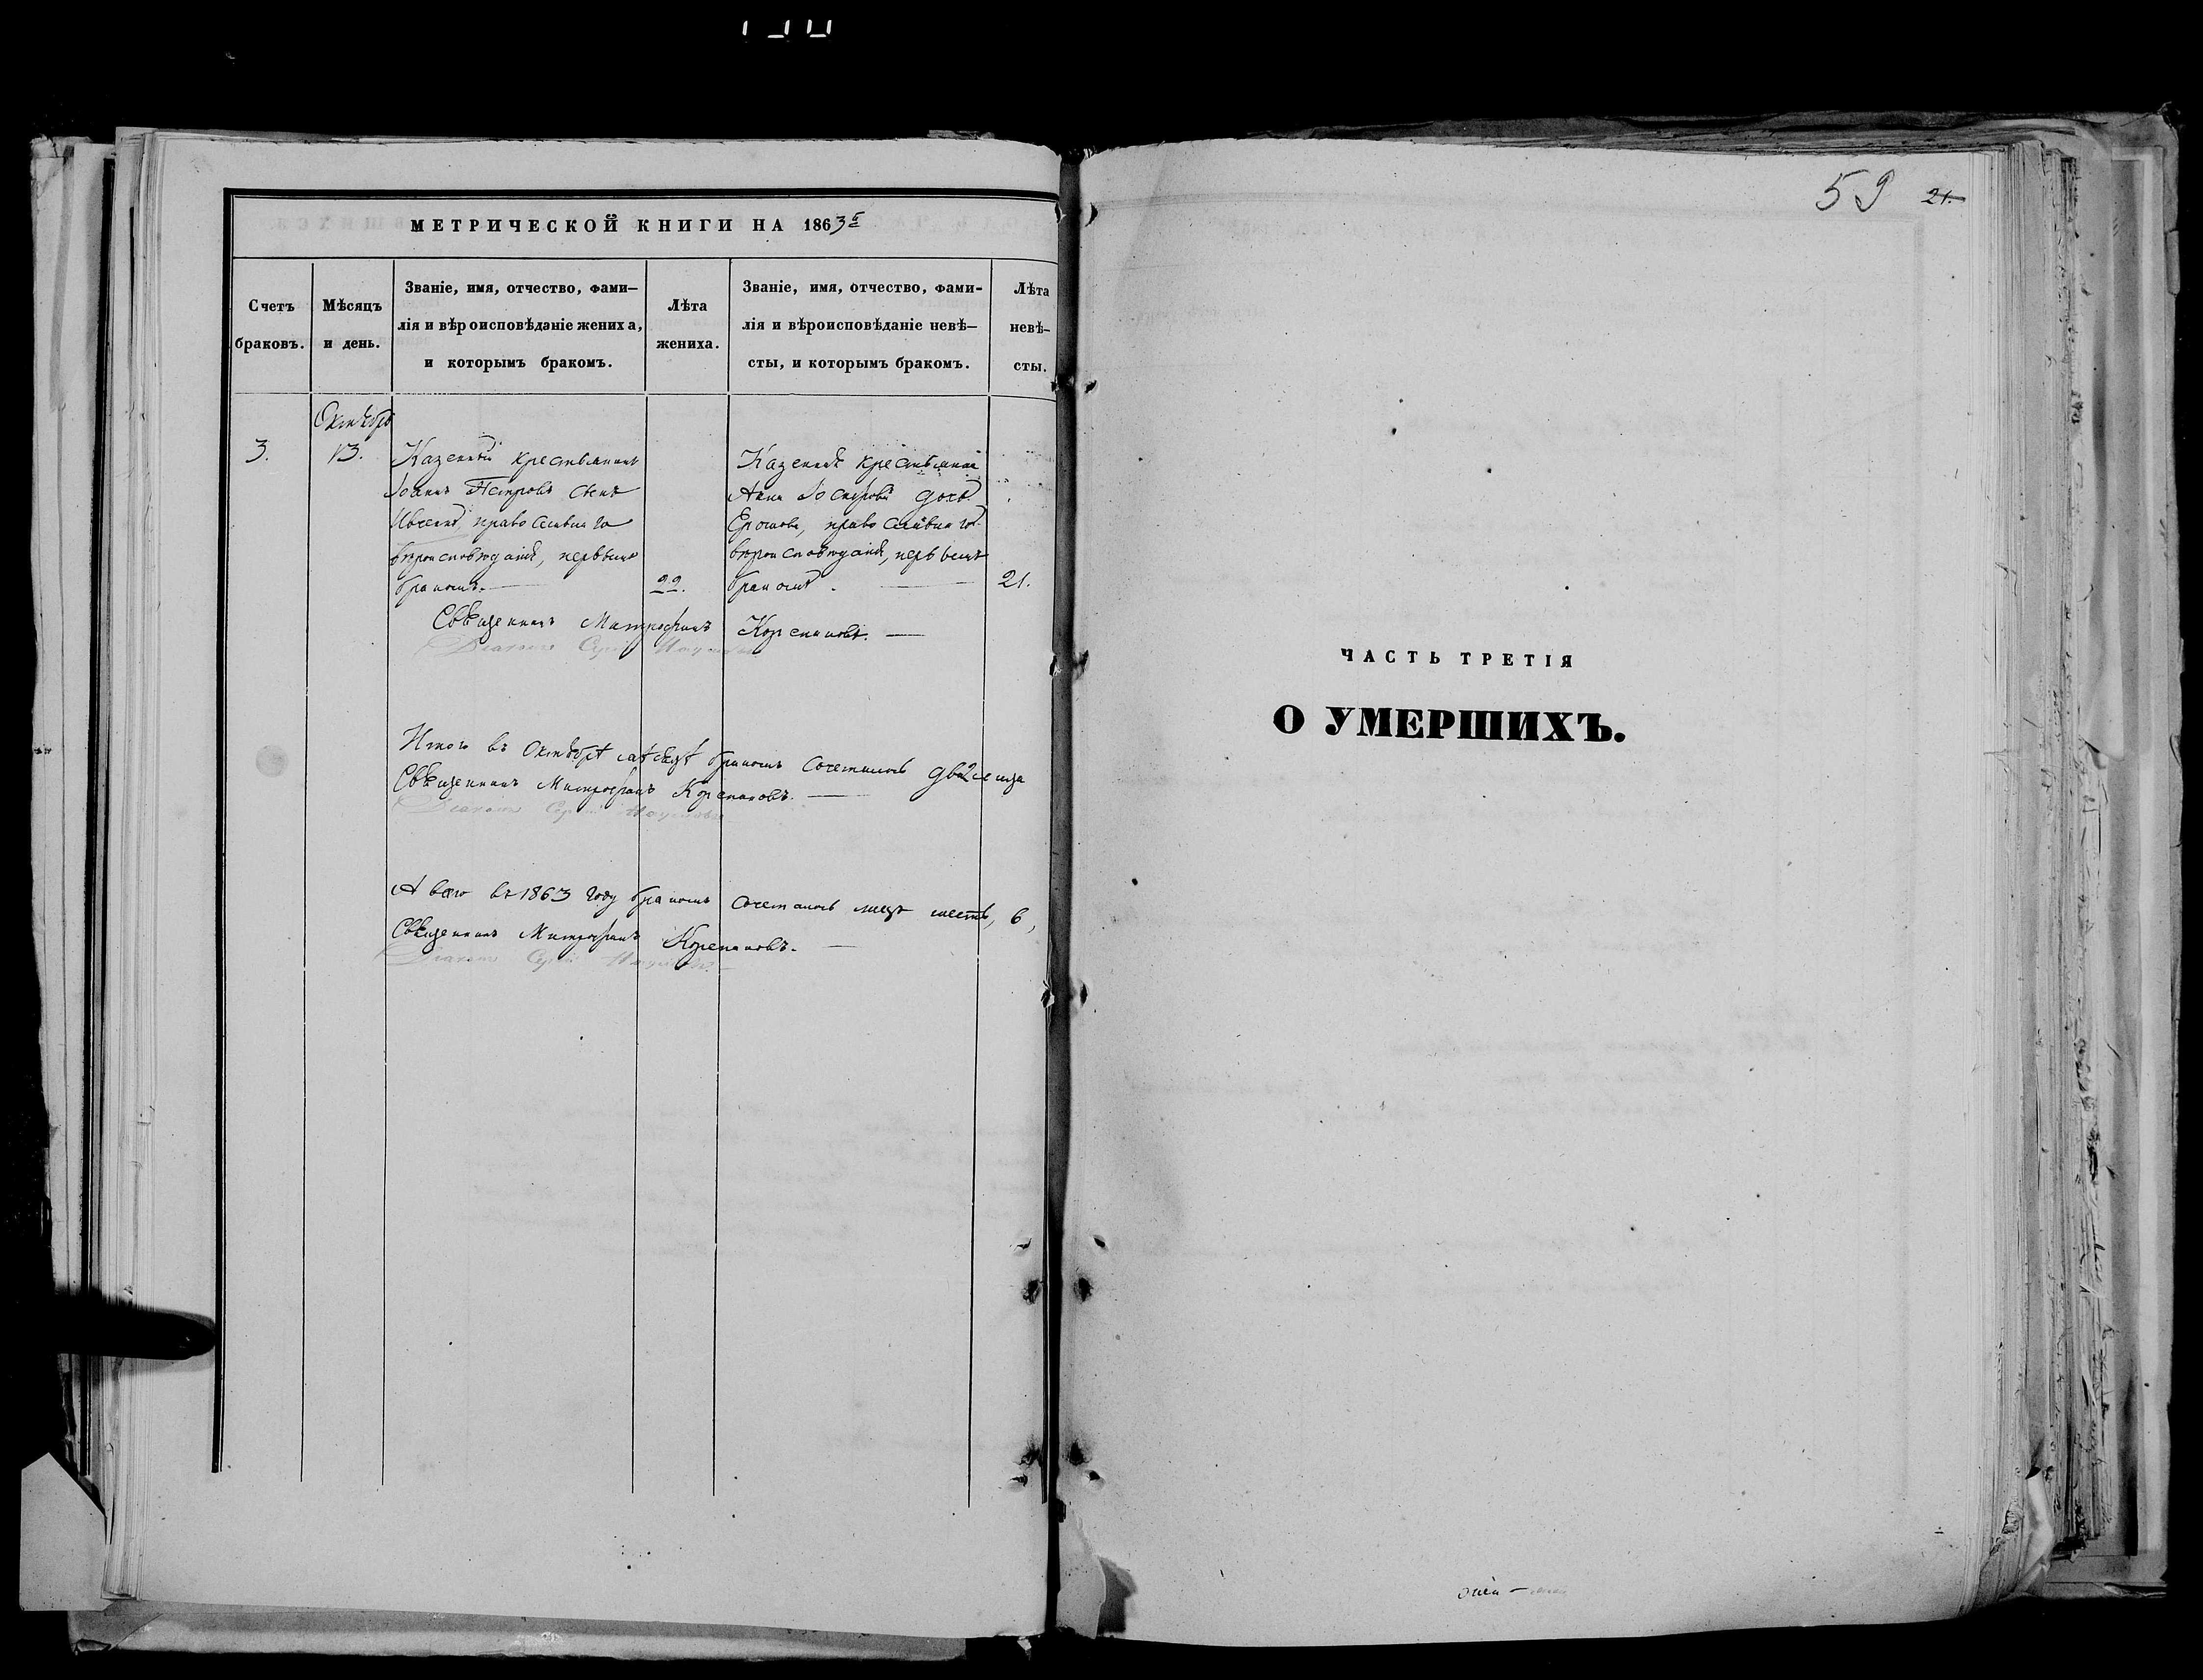 МЕТРИЧЕСКОЙ КНИГИ НА 1863й
59 21.
Счетъ браковъ.
Мѣсяцъ и день.
Званіе, имя, отчество, фами–
лія и вѣроисповѣданіе жениха,
и которымъ бракомъ.
Лѣта жениха.
Званіе, имя, отчество, фами-
лія и вѣроисповѣданіе невѣ–
сты, и которымъ бракомъ.
Лѣта невѣ–
сты.
Октябрь
3. 13.
Казенный крестьянинъ
Іоаннъ Петровъ сынъ
православнаго
вѣроисповѣданія, первымъ
бракомъ.
22.
Казенная крестьянка
Анна дочь
православнаго
вѣроисповѣданія, первымъ
бракомъ.
21.
Священникъ Митрофанъ Корепановъ.
Діаконъ Сергій
Итого въ Октябрѣ бракомъ сочеталось два 2 лица
Священникъ Митрофанъ Корепановъ.
Діаконъ Сергій
А всего въ 1863 году бракомъ сочеталось лицъ шесть, 6,
Священникъ Митрофанъ Корепановъ.
Діаконъ Сергій
ЧАСТЬ ТРЕТІЯ
О УМЕРШИХЪ.